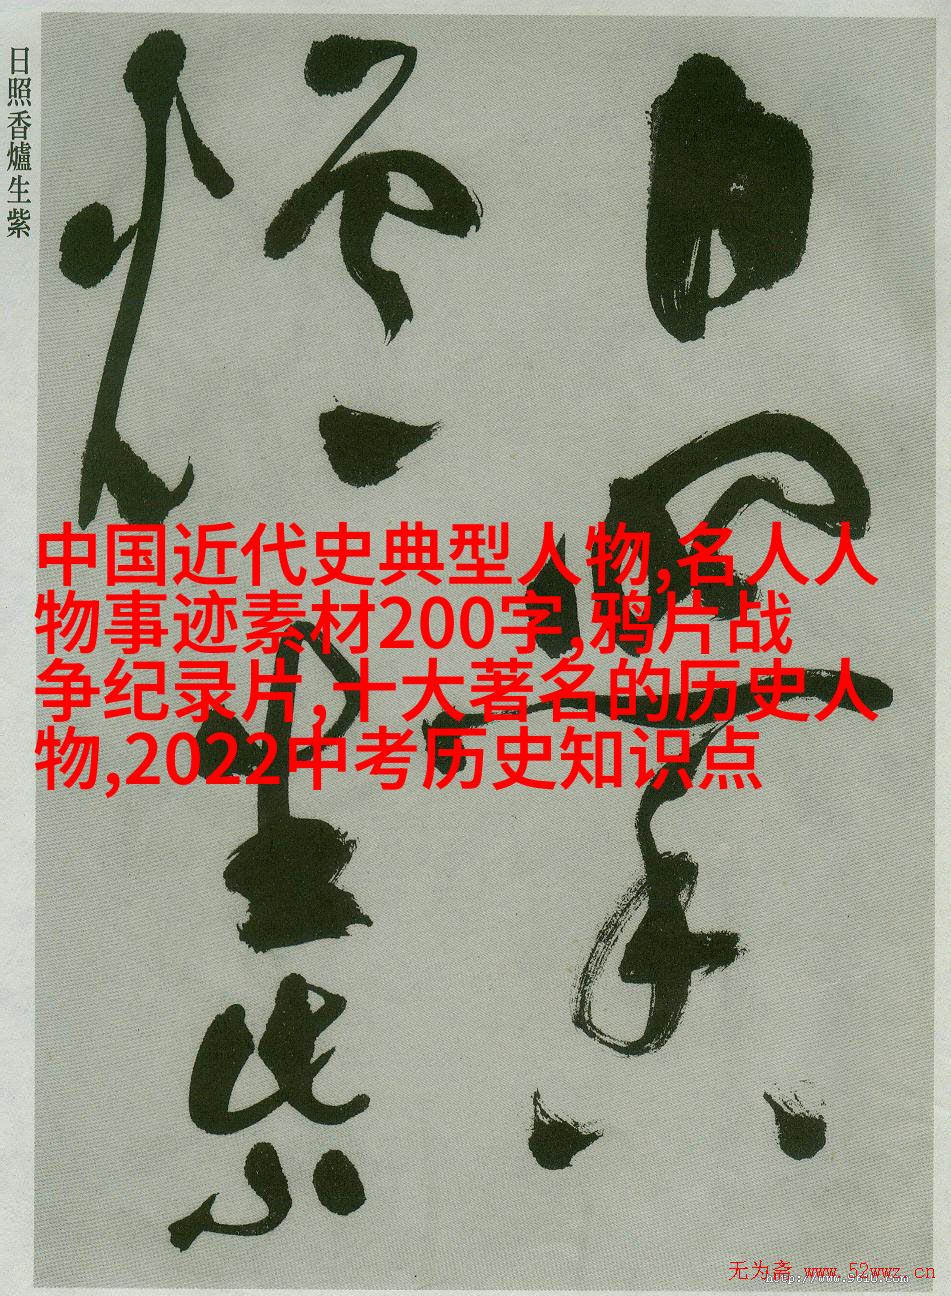 日照香爐生紫
日照香
爐生紫
中国近代史典型人物,名人人
物事迹素材200字,鸦片战
争纪录片,十大著名的历史人
物,2022中考历史知识点
无为斋 www.52wwz.cn
http://www.9610.com